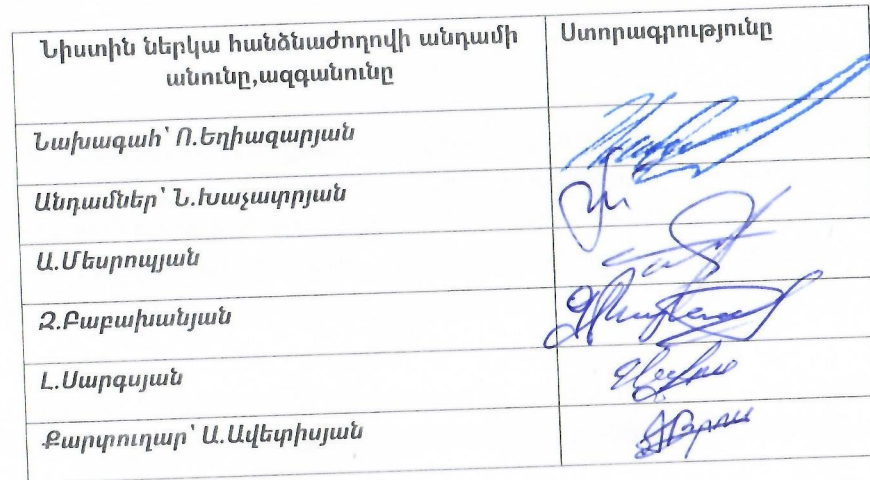 Նիստին ներկա հանձնաժողովի անդամի
անունը,ազգանունը
Ստորագրությունը
Նախագահ՝ Ռ.Եղիազարյան
Անդամներ՝ Ն.Խաչատրյան
Ա.Մեսրոպյան
Զ.Բաբախանյան
Լ.Սարգսյան
Քարտուղար՝ Ա.Ավետիսյան